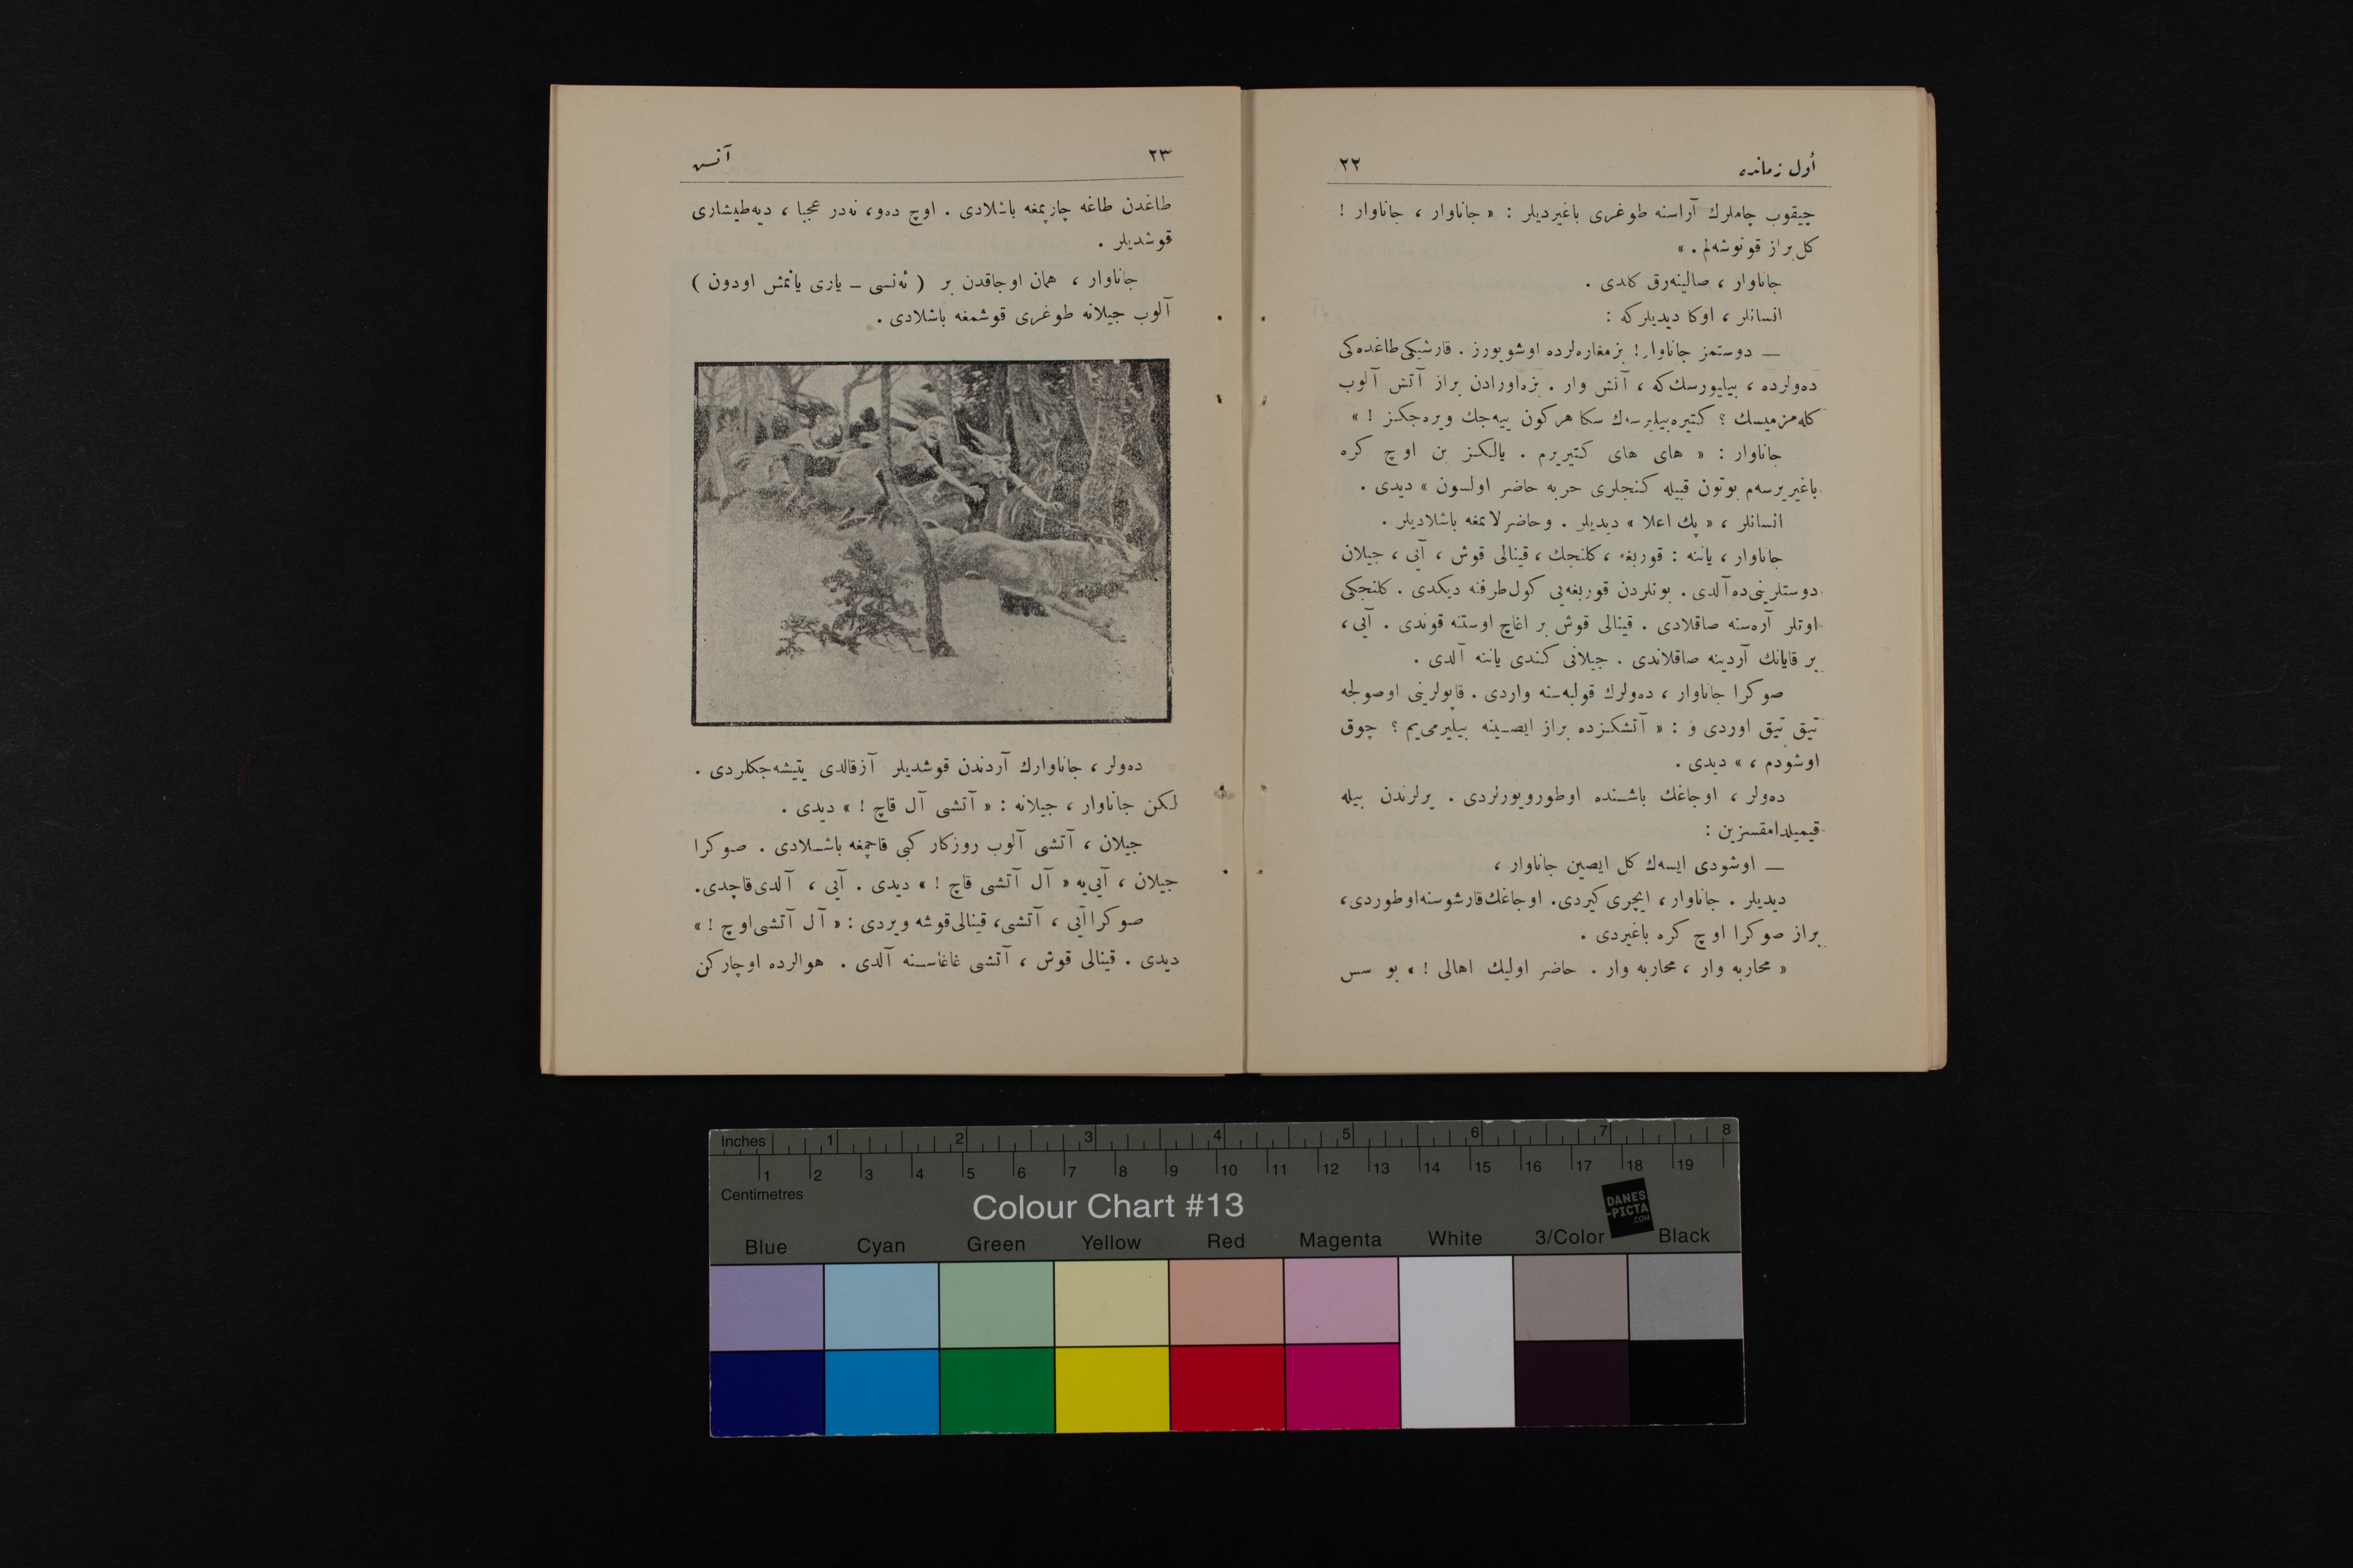 أول زمانده ٢٢
چيقوب چاملرك آراسنه طوغرى باغيرديلر : « جاناوار ، جاناوار !
كل براز قونوشه‌لم . »
جاناوار ، صالينه‌رق كلدى .
انسانلر ، اوكا ديديلركه :
— دوستمز جاناوار ! بزمغاره‌لرده اوشويورز . قارشيكى طاغده‌كى
ده‌ولرده ، بيليورسك كه ، آتش وار . بزه‌اورادن براز آتش آلوب
كله‌مزميسك ؟ كتيره‌بيليرسه‌ك سكا هركون ييه‌جك ويره‌جكز ! »
جاناوار : « هاى هاى كتيريرم . يالكز بن اوچ كره
باغيريرسه‌م بوتون قبيله كنجلرى حربه حاضر اولسون » ديدى .
انسانلر ، « پك اعلا » ديديلر . وحاضرلانمغه باشلاديلر .
جاناوار ، ياننه : قوربغه ، كلنجك ، قينالى قوش ، آيى ، جيلان
دوستلرينى‌ده آلدى . بونلردن قوربغه‌يى كول طرفنه ديكدى . كلنجكى
اوتلر آره‌سنه صاقلادى . قينالى قوش بر اغاچ اوستنه قوندى . آيى ،
بر قايانك آردينه صاقلاندى . جيلانى كندى ياننه آلدى .
صوكرا جاناوار ، ده‌ولرك قولبه‌سنه واردى . قاپولرينى اوصولجه
تيق تيق اوردى و : « آتشكزده براز ايصينه بيليرمى‌يم ؟ چوق
اوشودم ، » ديدى .
ده‌ولر ، اوجاغك باشنده اوطورويورلردى . يرلرندن بيله
قيميلدامقسزين :
— اوشودى ايسه‌ك كل ايصين جاناوار ،
ديديلر . جاناوار ، ايچرى كيردى . اوجاغك قارشوسنه اوطوردى ،
براز صوكرا اوچ كره باغيردى .
« محاربه وار ، محاربه وار . حاضر اوليك اهالى ! » بو سس
٢٣ آتش
طاغدن طاغه چارپمغه باشلادى . اوچ ده‌و ، نه‌در عجبا ، ديه‌طيشارى
قوشديلر .
جاناوار ، همان اوجاقدن بر ( ئه‌نسى — يارى يانمش اودون )
آلوب جيلانه طوغرى قوشمغه باشلادى .
ده‌ولر ، جاناوارك آردندن قوشديلر آزقالدى يتيشه‌جكلردى .
لكن جاناوار ، جيلانه : « آتشى آل قاچ ! » ديدى .
جيلان ، آتشى آلوب روزكار كبى قاچمغه باشلادى . صوكرا
جيلان ، آيى‌يه « آل آتشى قاچ ! » ديدى . آيى ، آلدى قاچدى .
صوكراآيى ، آتشى ، قينالى‌قوشه ويردى : « آل آتشى اوچ ! »
ديدى . قينالى قوش ، آتشى غاغاسنه آلدى . هوالرده اوچاركن
Inches 1 2 3 4 5 6 7 8
1 2 3 4 5 6 7 8 9 10 11 12 13 14 15 16 17 18 19
Centimetres
Colour Chart #13
DANES
-PICTA
.COM
Blue Cyan Green Yellow Red Magenta White 3/Color Black